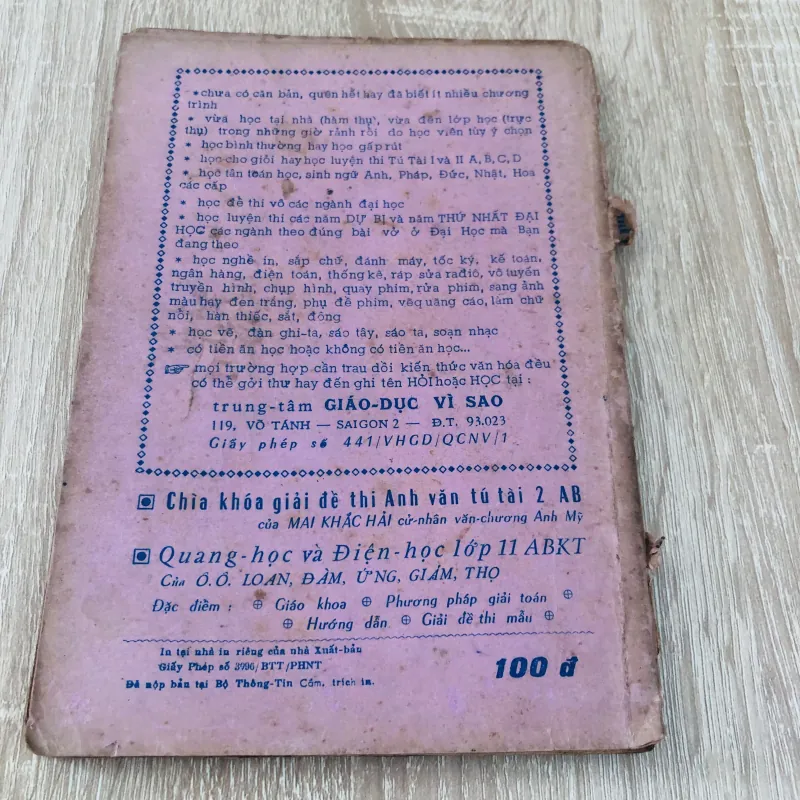 * chưa có căn bản, quên hết hay đã biết ít nhiều chương
trình
* vừa học tại nhà (hàm thụ), vừa đến lớp học (trực
thụ) trong những giờ rảnh rỗi do học viên tùy ý chọn
* học bình thường hay học gấp rút
* học cho giỏi hay học luyện thi Tú Tài I và II A, B, C, D
* học tân toán học, sinh ngữ Anh, Pháp, Đức, Nhật, Hoa
các cấp
* học để thi vô các ngành đại học
* học luyện thi các năm DỰ BỊ và năm THỨ NHẤT ĐẠI
HỌC các ngành theo đúng bài vở ở Đại Học mà Bạn
đang theo
* học nghề in, sắp chữ, đánh máy, tốc ký, kế toán,
ngân hàng, điện toán, thống kê, ráp sửa rađiô, vô tuyến
truyền hình, chụp hình, quay phim, rửa phim, sang ảnh
màu hay đen trắng, phụ đề phim, vẽ quảng cáo, làm chữ
nổi, hàn thiếc, sắt, đồng
* học vẽ, đàn ghi-ta, sáo tây, sáo ta, soạn nhạc
* có tiền ăn học hoặc không có tiền ăn học...
☞ mọi trường hợp cần trau dồi kiến thức văn hóa đều
có thể gởi thư hay đến ghi tên HỎI hoặc HỌC tại :
trung-tâm GIÁO-DỤC VÌ SAO
119, VÕ TÁNH — SAIGON 2 — Đ.T. 93.023
Giấy phép số 441/VHGD/QCNV/1
Chìa khóa giải đề thi Anh văn tú tài 2 AB
của MAI KHẮC HẢI cử-nhân văn-chương Anh Mỹ
Quang-học và Điện-học lớp 11 ABKT
Của Ô.Ô. LOAN, ĐẢM, ỨNG, GIẢM, THỌ
Đặc điểm : ⊕ Giáo khoa ⊕ Phương pháp giải toán ⊕
⊕ Hướng dẫn ⊕ Giải đề thi mẫu ⊕
In tại nhà in riêng của nhà Xuất-bản
Giấy Phép số 3996/BTT/PHNT
Đã nộp bản tại Bộ Thông-Tin Cấm, trích in.
100 đ